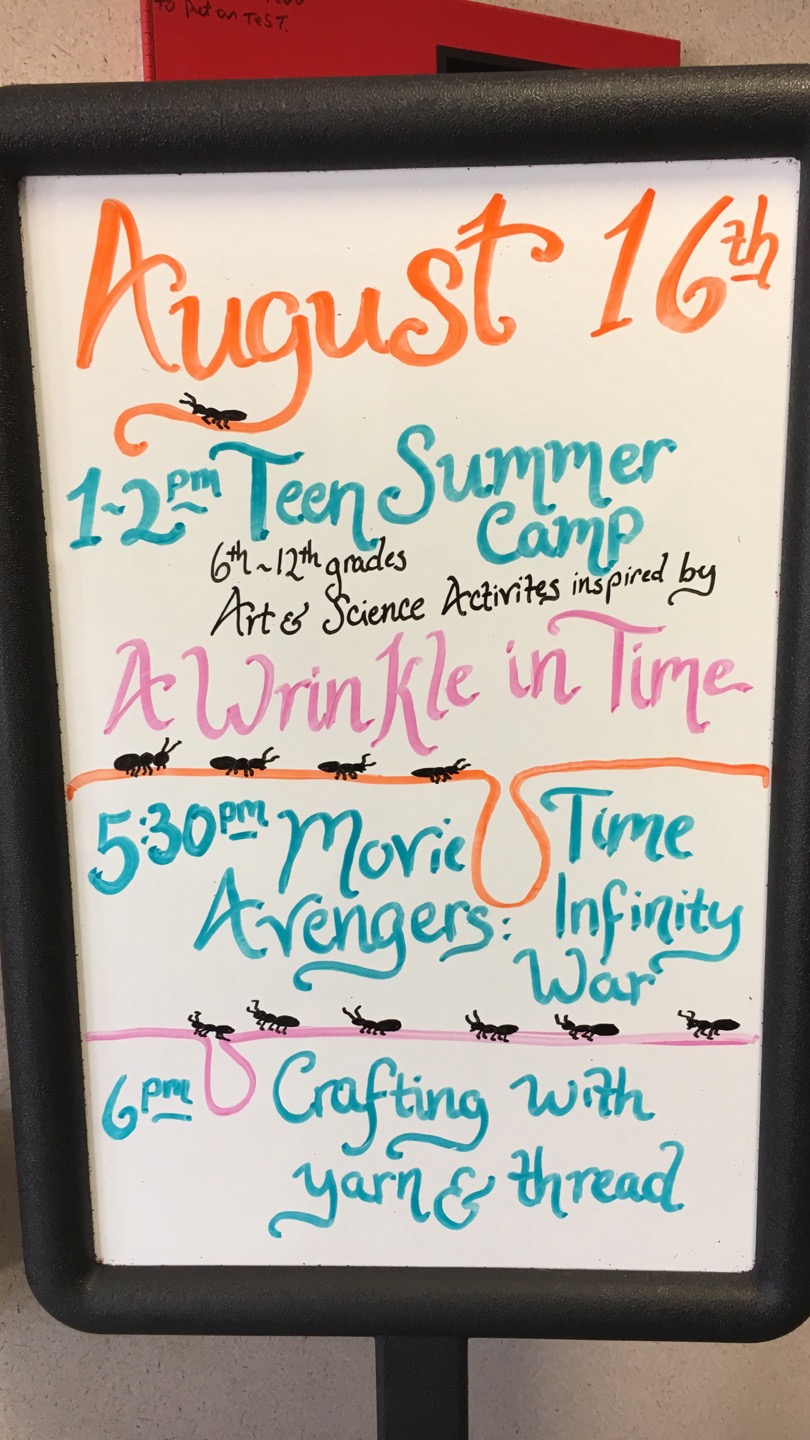 to put on TEST.
August 16th
1~2pm Teen Summer
Camp
6th~12th grades
Art & Science Activites inspired by
A Wrinkle in Time
5:30pm Movie Time
Avengers: Infinity
War
6pm Crafting with
yarn & thread